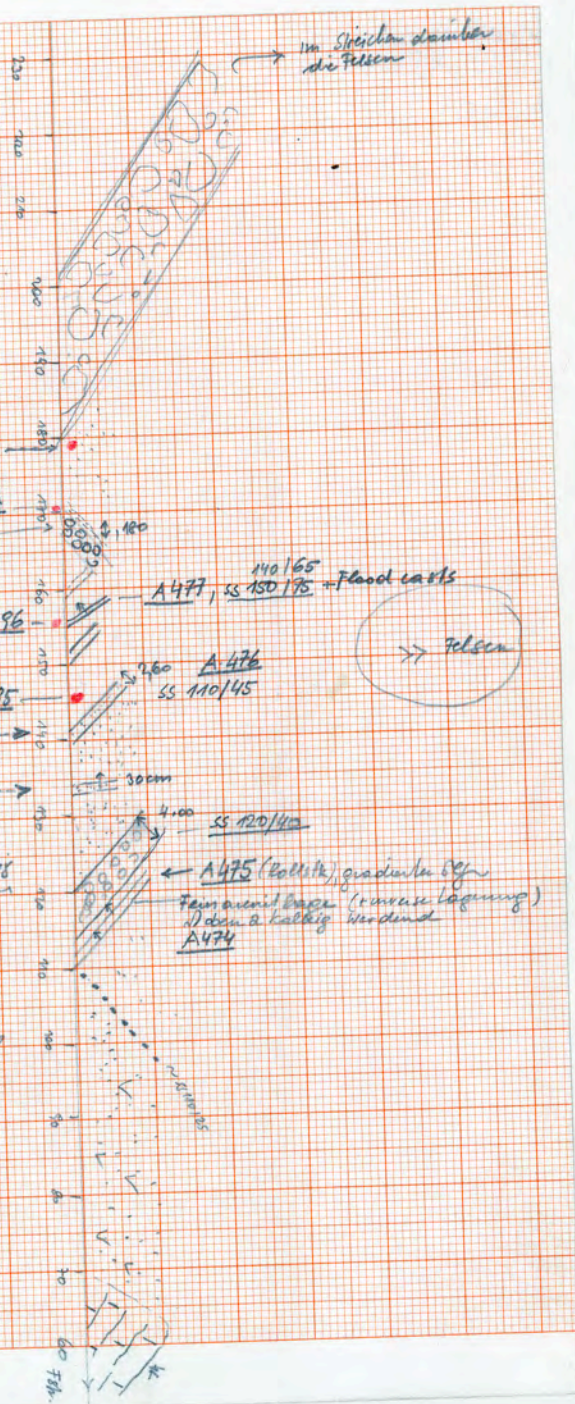 im Streichen darüber
die Felsen
230
220
210
200
190
180
170
1,80
160
140/65
A 477, ss 150/75 + Flood casts
96
>> Felsen
150
2,60 A 476
ss 110/45
95
140
30cm
130
4.00
ss 120/40
A 475 (Kollstk), gradierter
120
Feinarenit lage (inverse Lagerung)
oben kalkig werdend
A 474
110
100
90
80
70
60